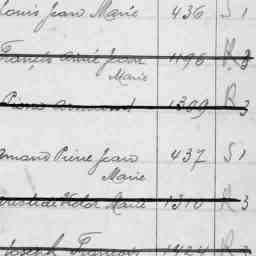 Louis Jean Marie 436 S 1
François Aimé Jean 1196 R 3
Marie
Pierre Armand 1309 R 3
Armand Pierre Jean 437 S 1
Marie
Victor Marie 1310 R 3
Joseph François 1424 R 3